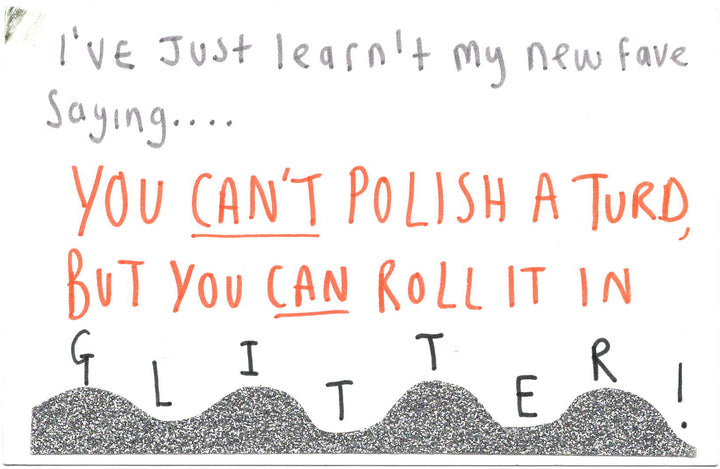 I'VE JUSt learn't my new fave
Saying....
YOU CAN'T POLISH A TURD,
BUT YOU CAN ROLL IT IN
GLITTER!